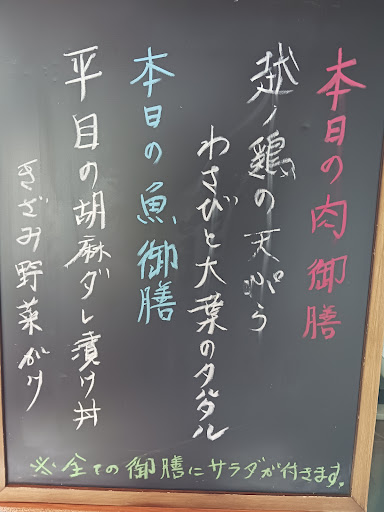 本日の肉御膳
越ノ鶏の天ぷら
わさびと大葉のタルタル
本日の魚御膳
平目の胡麻ダレ漬け丼
きざみ野菜がけ
※全ての御膳にサラダが付きます。